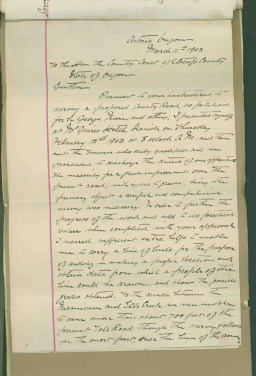 Astoria Oregon
March 11th 1903
To the Hon the County Court of Clatsop County
State of Oregon
Gentlemen
Pursuant to your instructions to
survey a proposed County Road, as petitioned
for by George and others, I presented myself
at Hotel on Thursday
February 12th 1903 at 8 o'clock A.M. and then
and the viewers who duly qualified and we
proceeded to discharge the duties of our appointment
The necessity for a great improvement over the
present road, with to grades, being the
primary object a careful and comprehensive
survey was necessary. In order to further the
progress of the work and add to its practical
value when completed with your approval
I secured sufficient extra help to enable
me to carry a line of levels for the purpose
of aiding in making a proper location and
obtain data from which a profile of the
line could be drawn and show the possible
grades obtained. To the divide between the
Necanicum and Creek we were unable
to save more than about 700 feet of the
present Toll Road though the survey follows
for the most part, over the line of the